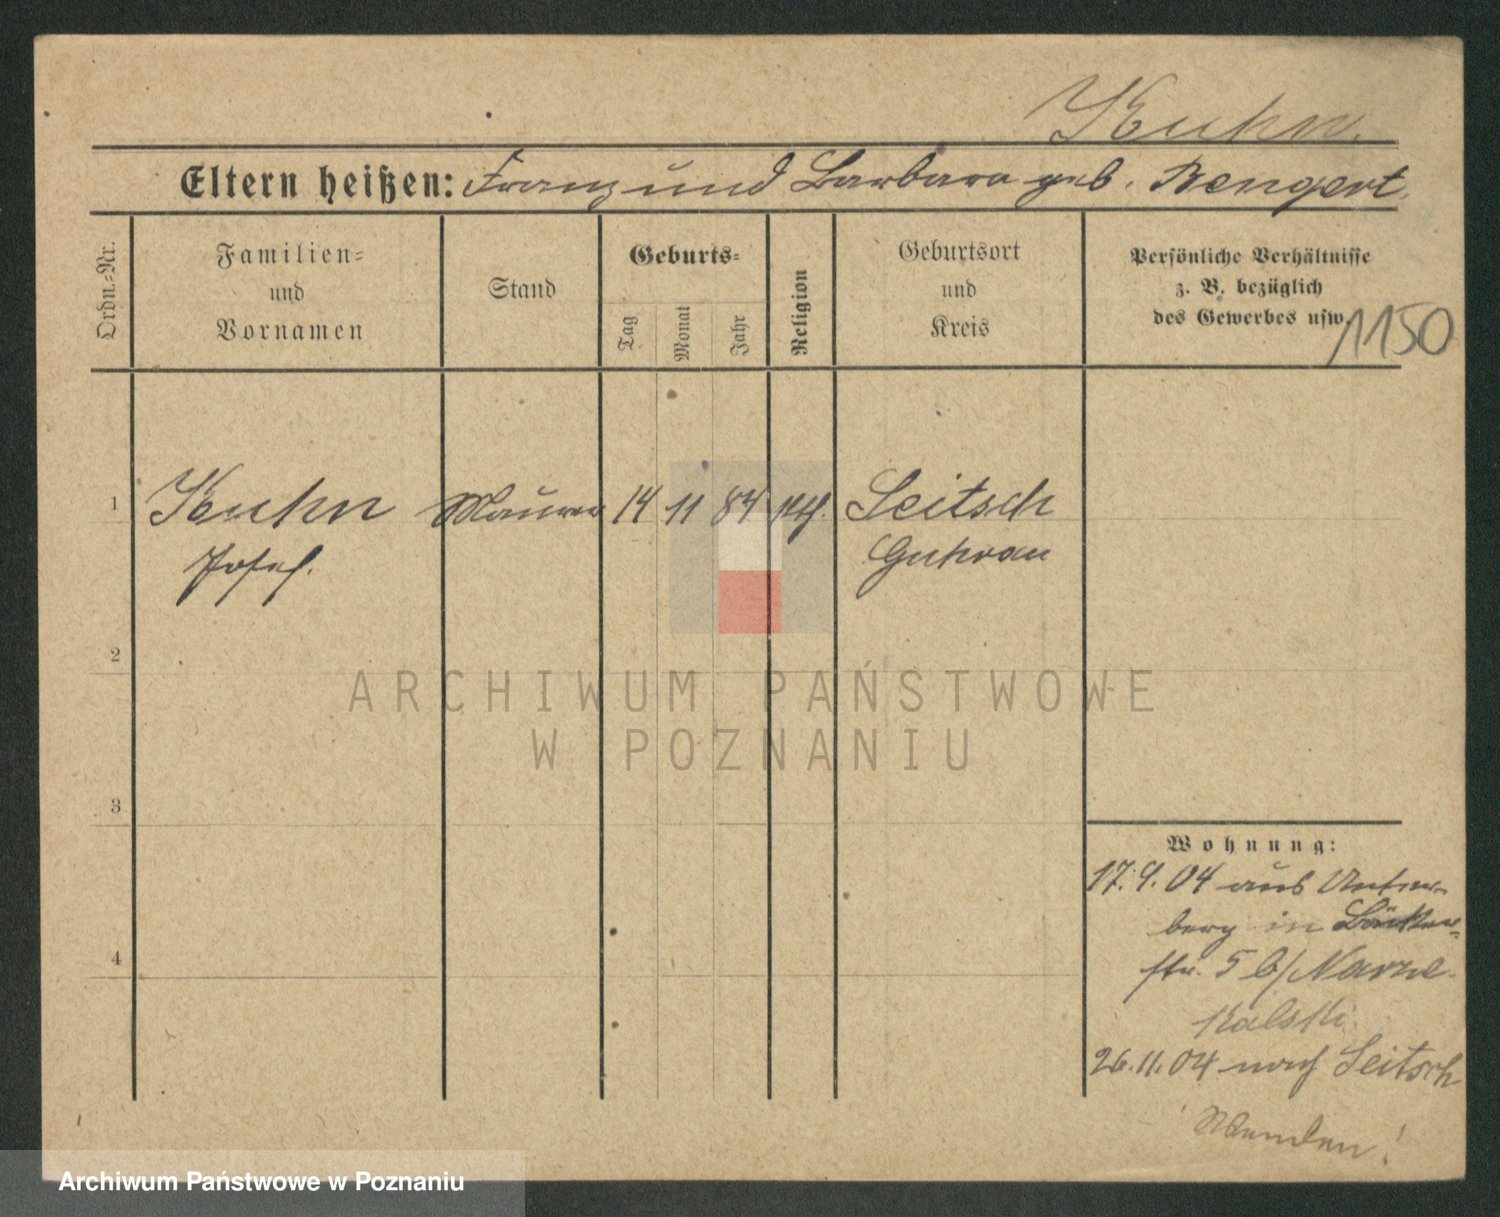 Kuhn.
Eltern heißen: Franz und Barbara geb. Bengert.
Ordn.-Nr.
Familien-
und
Vornamen
Stand
Geburts-
Tag
Monat
Jahr
Religion
Geburtsort
und
Kreis
Persönliche Verhältnisse
z. B. bezüglich
des Gewerbes usw.
1150
1
Kuhn Maurer 14 11 84 kth. Seitsch
Josef. Guhrau
2
3
4
Wohnung:
17.9.04 aus Unter-
berg in Bäcker-
str. 5 b/
kalski
26.11.04 nach Seitsch
Wenden!
ARCHIWUM PAŃSTWOWE
W POZNANIU
Archiwum Państwowe w Poznaniu